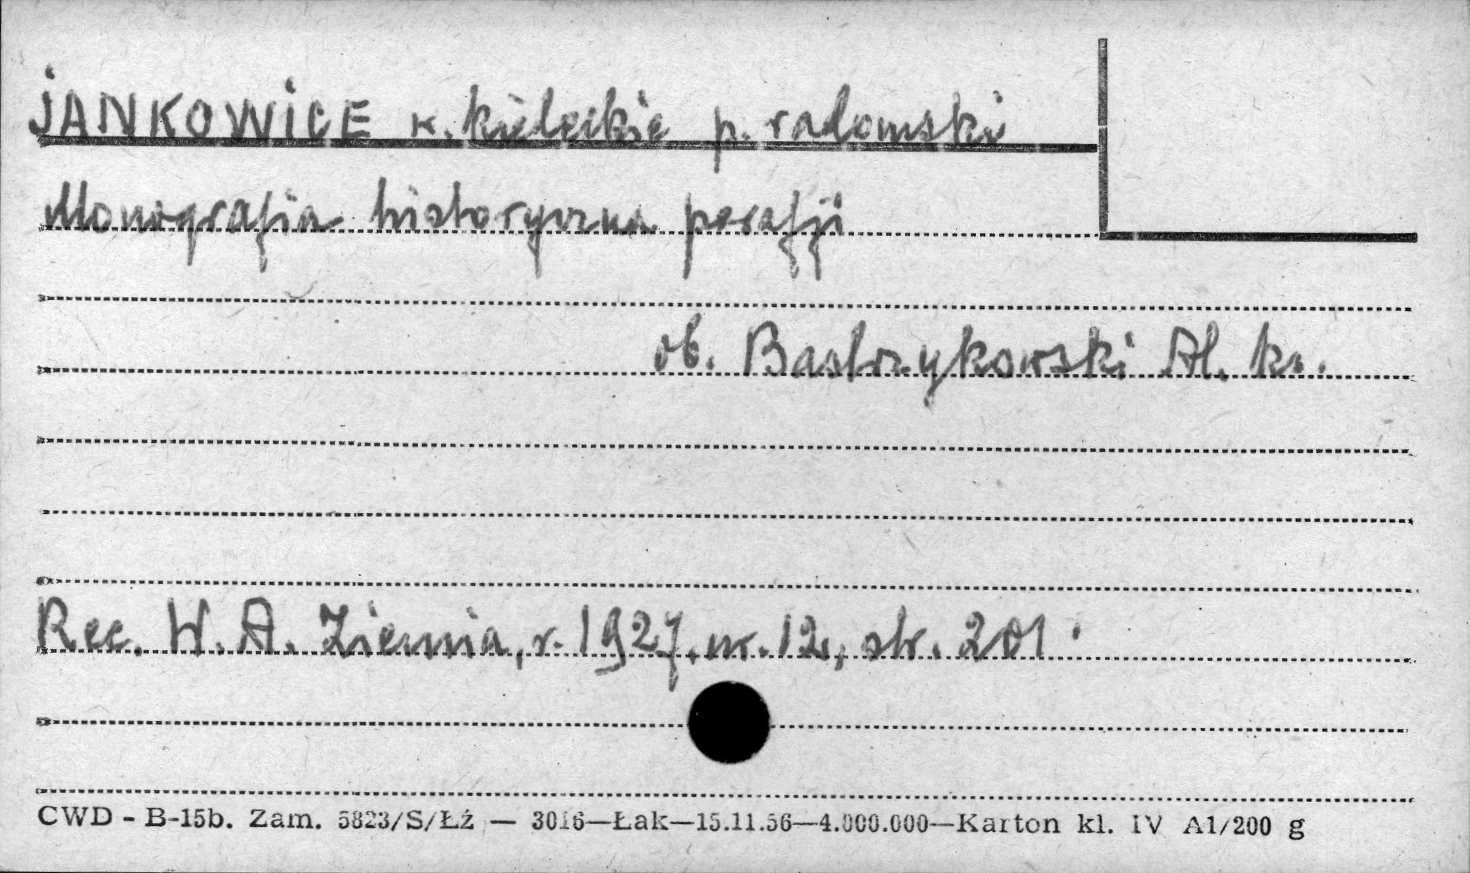 JANKOWICE w. kieleckie p. radomski
Monografia historyczna parafji
ob. Bastrzykowski Al. ks.
Rec. W. A. Ziemia, r. 1927. nr. 12, str. 201.
CWD - B-15b. Zam. 5823/S/Łź — 3016—Łak—15.11.56—4.000.000—Karton kl. IV A1/200 g